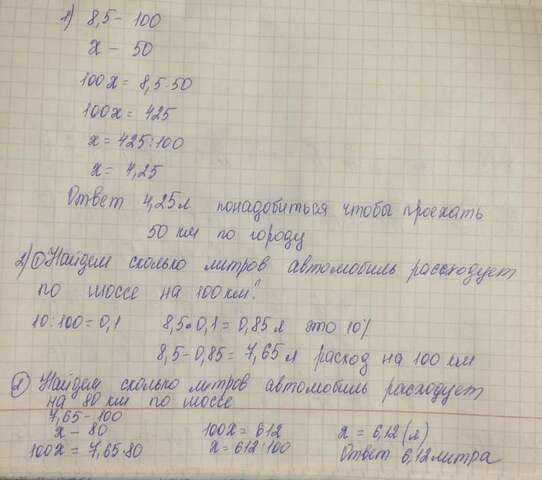 1) 8,5 - 100
х - 50
100х = 8,5·50
100х = 425
х = 425:100
х = 4,25
Ответ 4,25л понадобиться чтоба проехать
50 км по городу
2) ① Найдем сколько литров автомобиль рассходует
по шоссе на 100 км:
10:100=0,1 8,5·0,1=0,85л это 10%
8,5-0,85=7,65л расход на 100 км
② Найдем сколько литров автомобиль расходует
на 80 км по шоссе
7,65 - 100
х - 80 100х = 612 х = 6,12 (л)
100х = 7,65·80 х = 612:100 Ответ 6,12литра